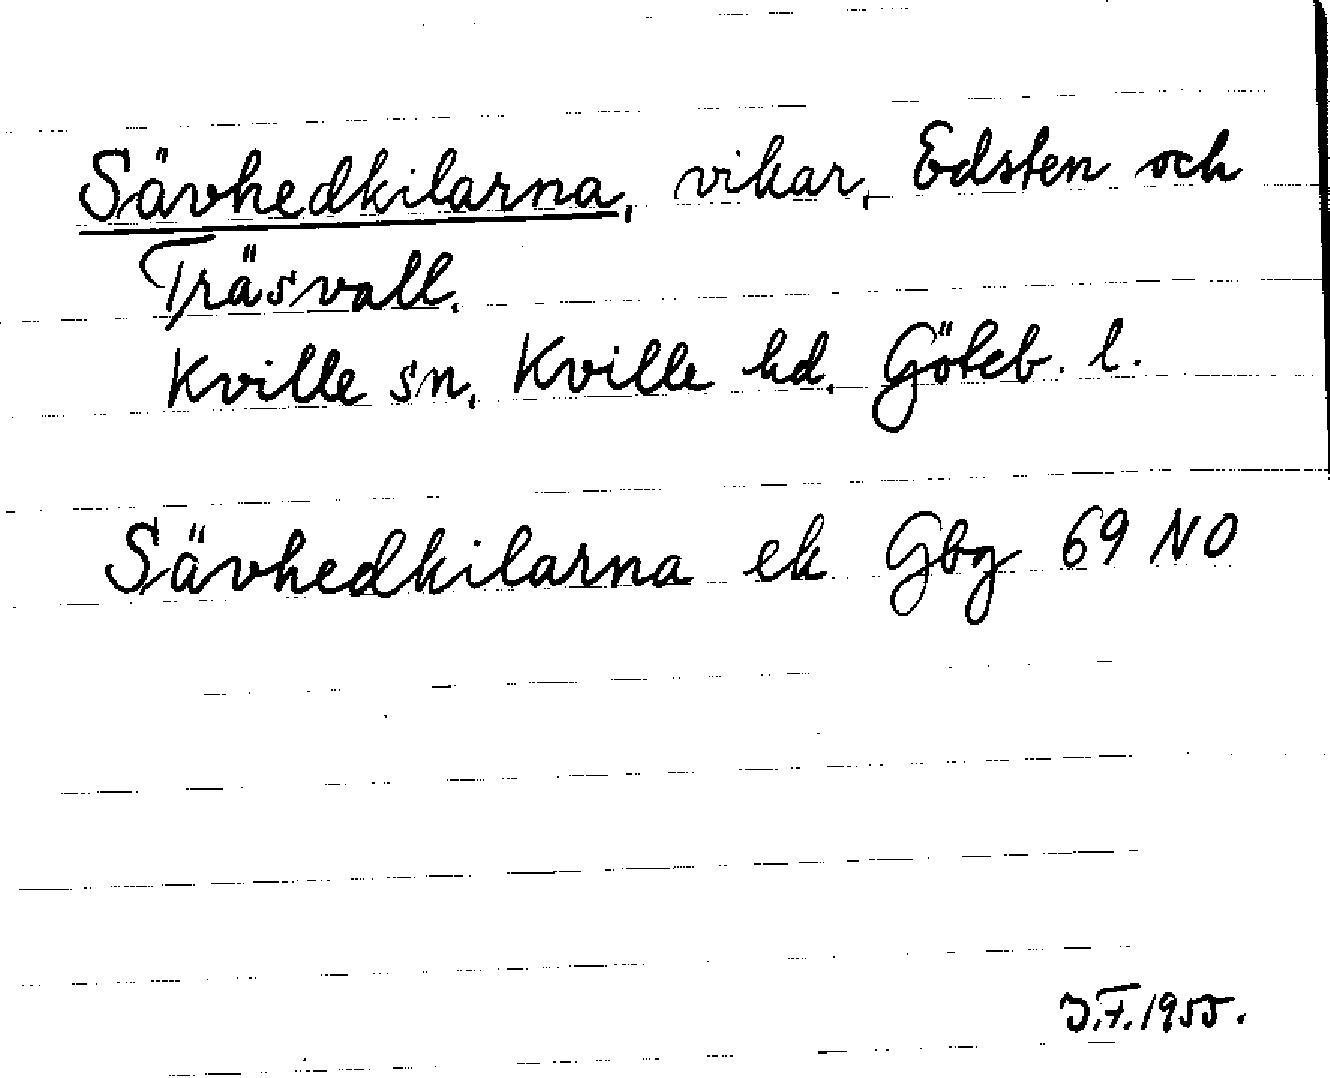 Sävhedkilarna, vikar, Edsten och
Träsvall.
Kville sn, Kville hd. Göteb. l.
Sävhedkilarna ek Gbg 69 NO
J.F. 1955.